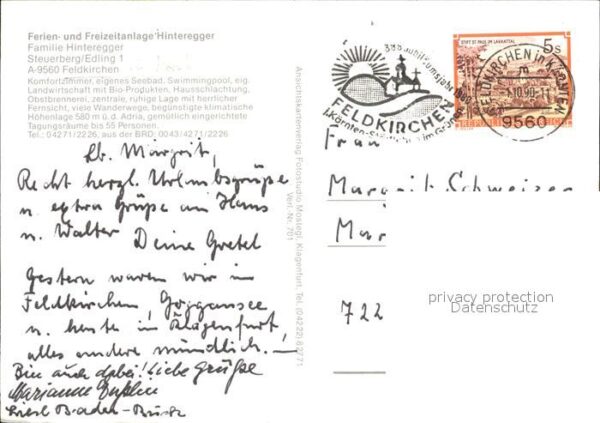 Ferien- und Freizeitanlage Hinteregger
Familie Hinteregger
Steuerberg/Edling 1
A-9560 Feldkirchen
Komfortzimmer, eigenes Seebad. Swimmingpool, eig.
Landwirtschaft mit Bio-Produkten, Hausschlachtung,
Obstbrennerei, zentrale, ruhige Lage mit herrlicher
Fernsicht, viele Wanderwege, begünstigte klimatische
Höhenlage 580 m ü. d. Adria, gemütlich eingerichtete
Tagungsräume bis 55 Personen.
Tel.: 04271/2226, aus der BRD: 0043/4271/2226
Lb. Margrit,
Recht herzl. Urlaubsgrüße
u. extra Grüße an Hans
u. Walter Deine Gretel
Gestern waren wir in
Feldkirchen, Goggausee
u. heute in Klagenfurt,
alles andere mündlich.
Bin auch dabei! Liebe Grüße
Marianne
Baden-
Ansichtskartenverlag Fotostudio Moslegl, Klagenfurt, Tel. (04222) 82771
Verl.-Nr. 701
Jubiläumsjahr
FELDKIRCHEN
STIFT ST. PAUL IM LAVANTTAL
5s
REPUBLIK ÖSTERREICH
FELDKIRCHEN in KÄRNTEN
.10.90-11
9560
Frau
Margrit Schweizer
722
privacy protection
Datenschutz